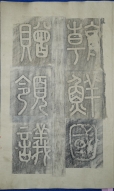 朝鮮國
贈領議